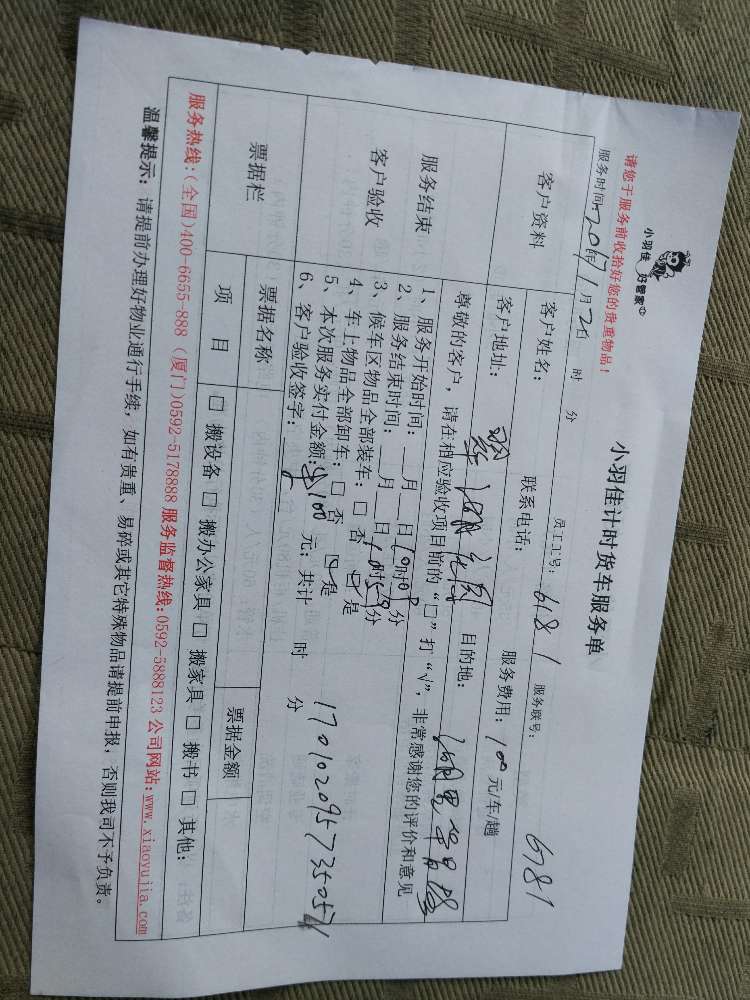 小羽佳 好管家
小羽佳计时货车服务单
请您于服务前收拾好您的贵重物品！
服务时间：2017年1月2日 时 分 员工工号：6181 服务联号：6781
客户资料 客户姓名： 联系电话： 服务费用：100元/车/趟
客户地址： 目的地：
服务结束
客户验收
尊敬的客户，请在相应验收项目前的“□”打“√”，非常感谢您的评价和意见
1、服务开始时间： 月 日 时 分
2、服务结束时间： 月 日 时 分
3、候车区物品全部装车：□ 否 □ 是
4、车上物品全部卸车：□ 否 □ 是
5、本次服务实付金额：100 元；共计 时 分
6、客户验收签字：
17010209573505
票据栏 票据名称 票据金额
项 目 □ 搬设备 □ 搬办公家具 □ 搬家具 □ 搬书 □ 其他：
服务热线：(全国)400-6655-888（厦门)0592-5178888 服务监督热线:0592-5888123 公司网站:www.xiaoyujia.com
温馨提示：请提前办理好物业通行手续，如有贵重、易碎或其它特殊物品请提前申报，否则我司不予负责。